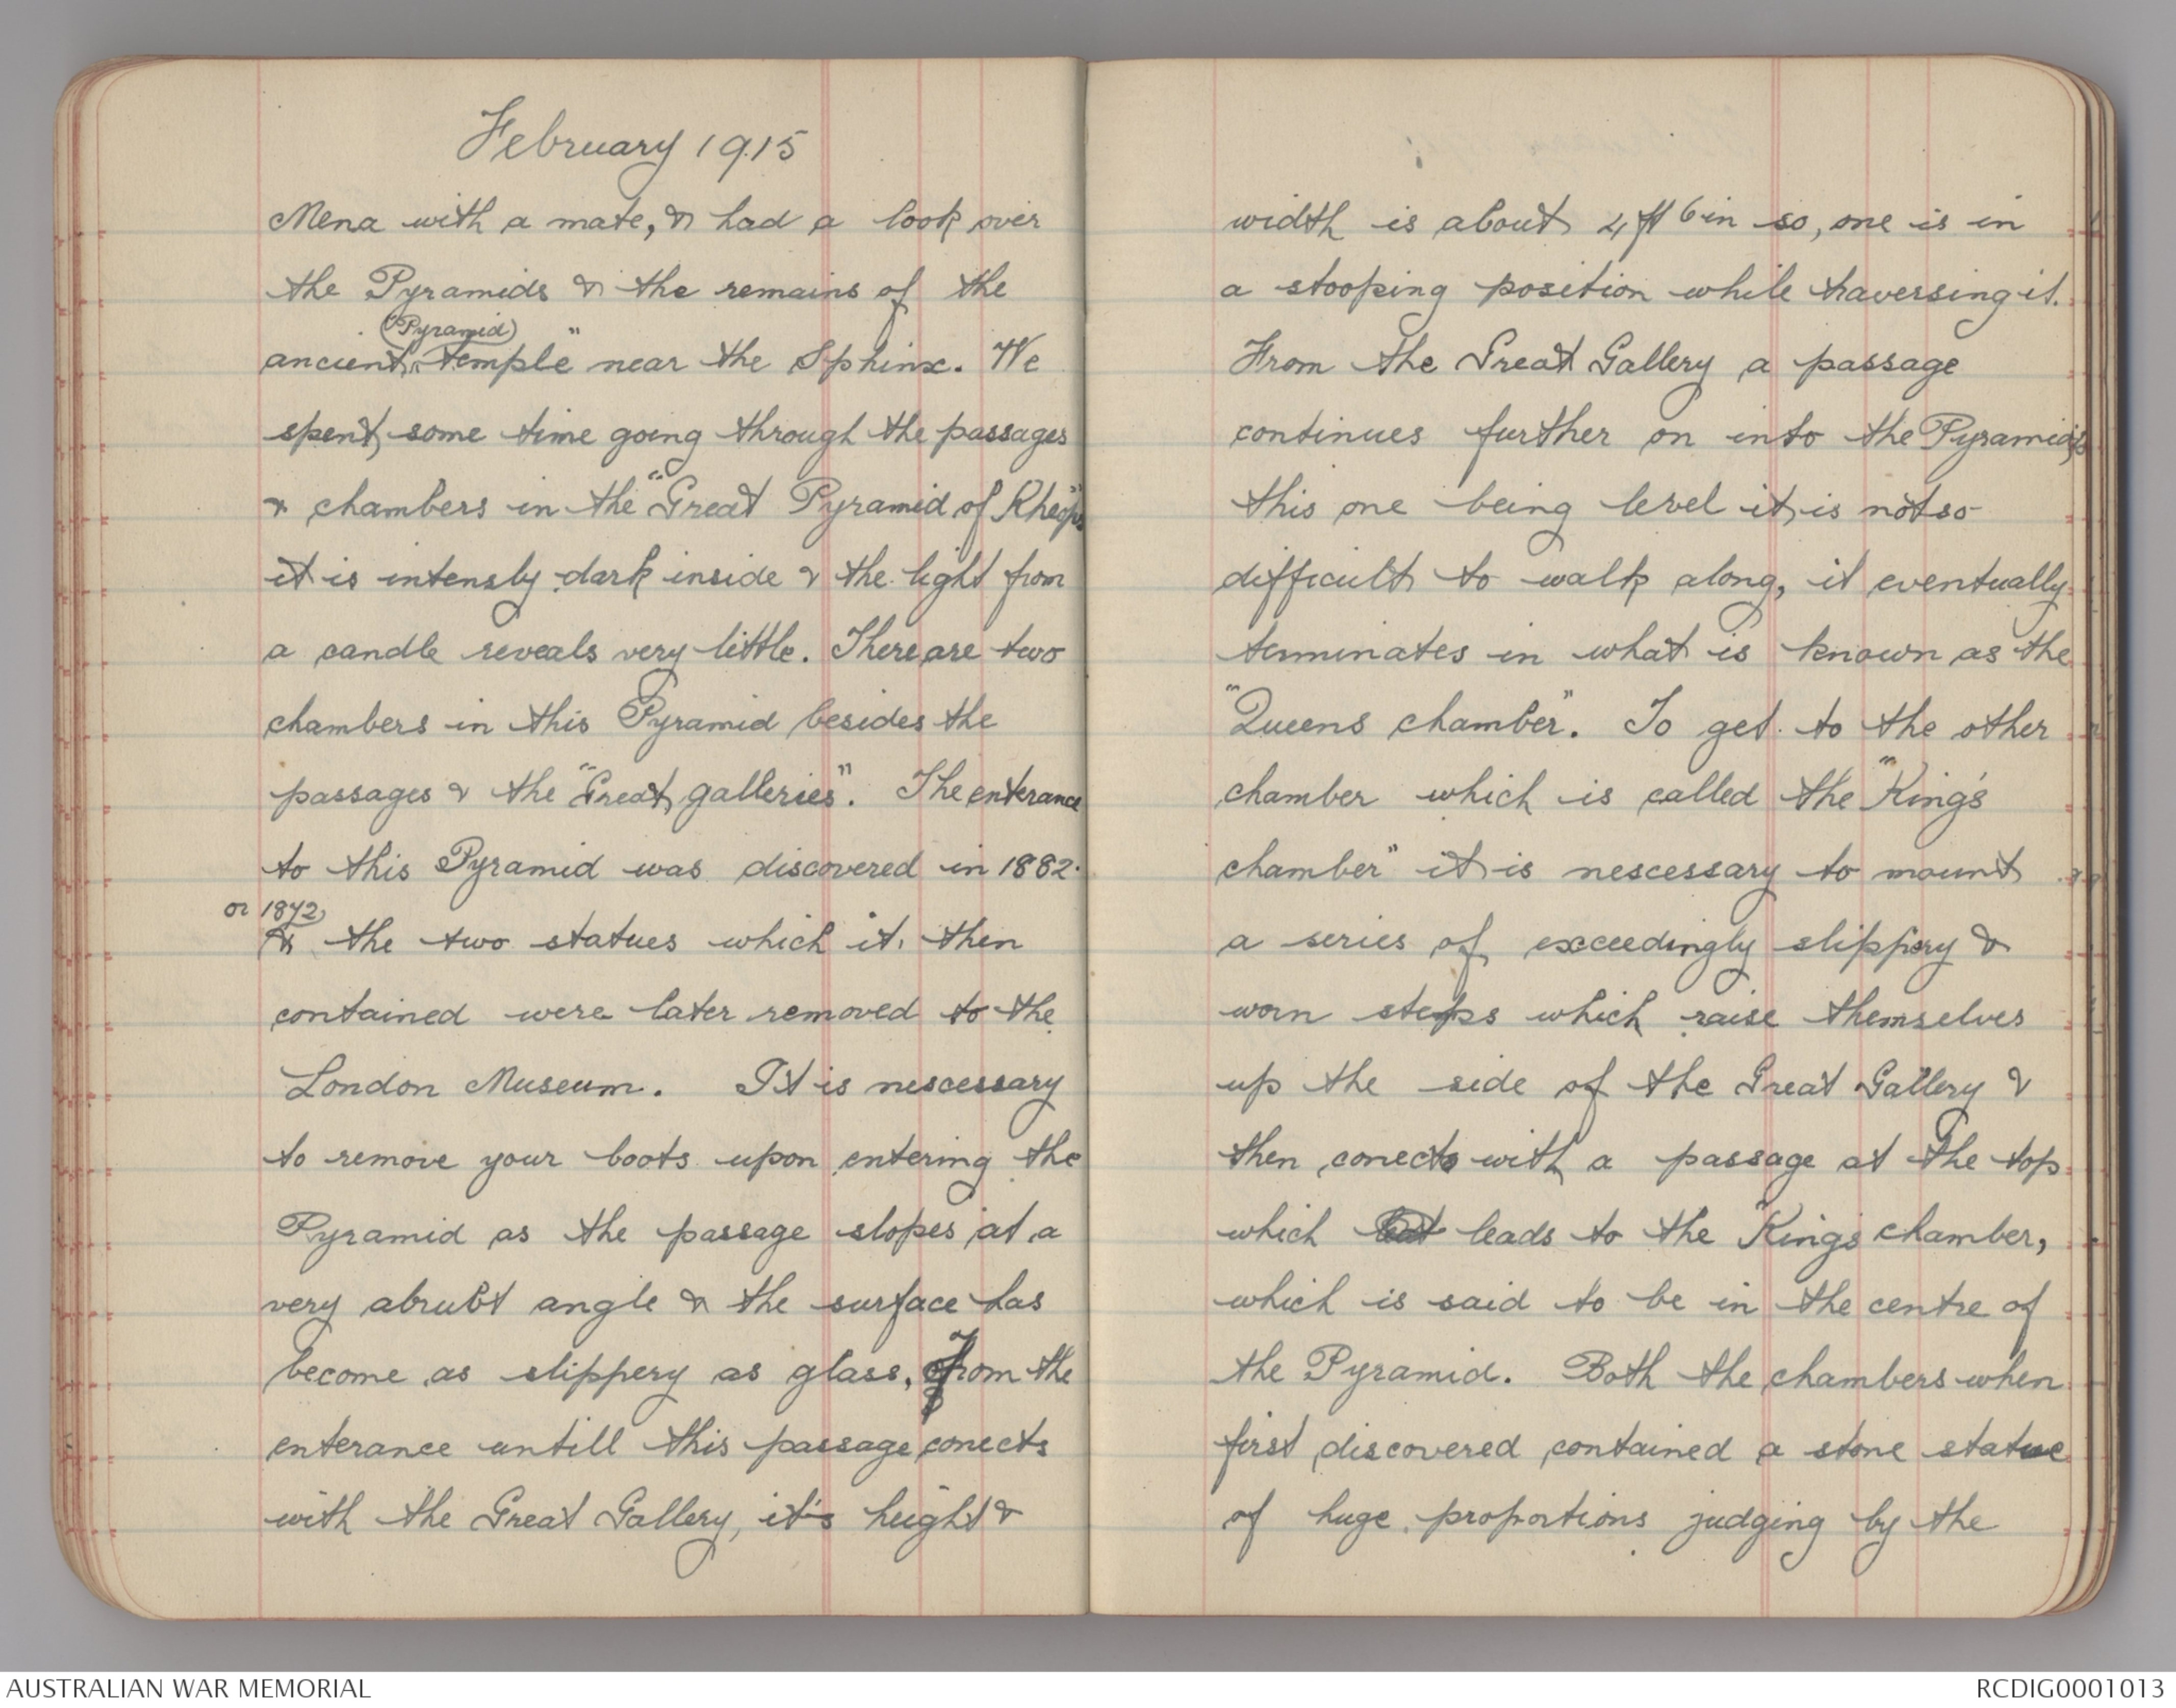 February 1915
Mena with a mate, & had a look over
the Pyramids & the remains of the
(Pyramid)
ancient "temple" near the Sphinx. We
spent some time going through the passages
& chambers in the "Great Pyramid of Kheops"
it is intensly dark inside & the light from
a candle reveals very little. There are two
chambers in this Pyramid besides the
passages & the "Great galleries". The enterance
to this Pyramid was discovered in 1882.
or 1872
& the two statues which it then
contained were later removed to the
London Museum. It is nescessary
to remove your boots upon entering the
Pyramid as the passage slopes at a
very abrubt angle & the surface has
become as slippery as glass, From the
enterance untill this passage conects
with the Great Gallery, it's height &
width is about 4 ft 6 in so, one is in
a stooping position while traversing it.
From the Great Gallery a passage
continues further on into the Pyramids
this one being level it is not so
difficult to walk along, it eventually
terminates in what is known as the
"Queens chamber". To get to the other
chamber which is called the "King's
chamber" it is nescessary to mount
a series of exceedingly slippery &
worn steps which raise themselves
up the side of the Great Gallery &
then conects with a passage at the top
which leads to the "Kings chamber,
which is said to be in the centre of
the Pyramid. Both the chambers when
first discovered contained a stone statue
of huge proportions judging by the
AUSTRALIAN WAR MEMORIAL
RCDIG0001013